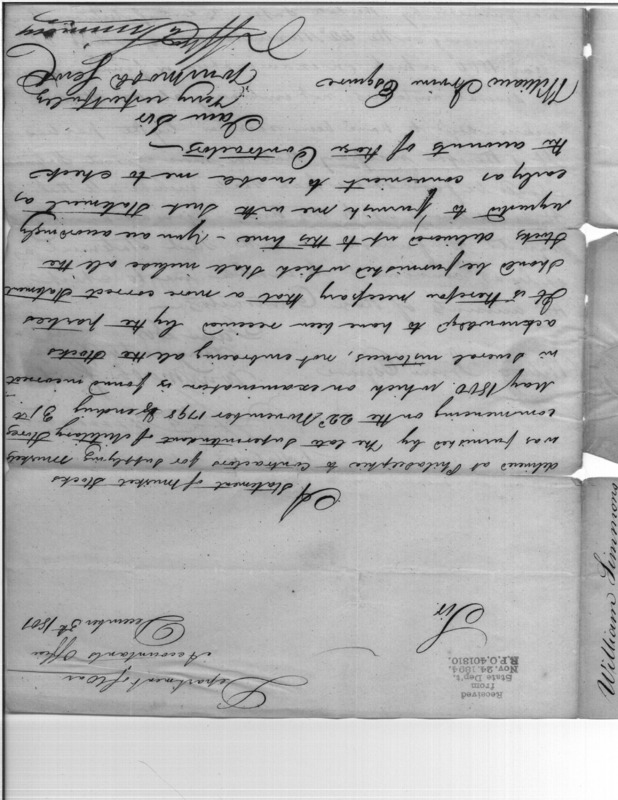 Department of War
Accountants Office
December 3d 1801
Received
from
State Dep't.
Nov. 24, 1894.
R.P.O. 401810.
Sir
A Statement of Musket Stocks
delivered at Philadelphia to Contractors for Supplying Muskets
was furnished by the late Superintendent of Military Stores
commencing on the 22d November 1798 & ending 31st
May 1800. which on examination is found incorrect
in several instances, not embracing all the Stocks
acknowledgd to have been received by the parties
It is therefore necessary that a more correct Statement
should be furnished which shall embrace all the
Stocks delivered up to this time – you are accordingly
requested to furnish me with such Statement as
early as convenient to enable me to check
the accounts of these Contractors –
I am Sir
Very respectfully
Your mo Ob Servt
Wm Simmons
William Irvine Esquire
William Simmons